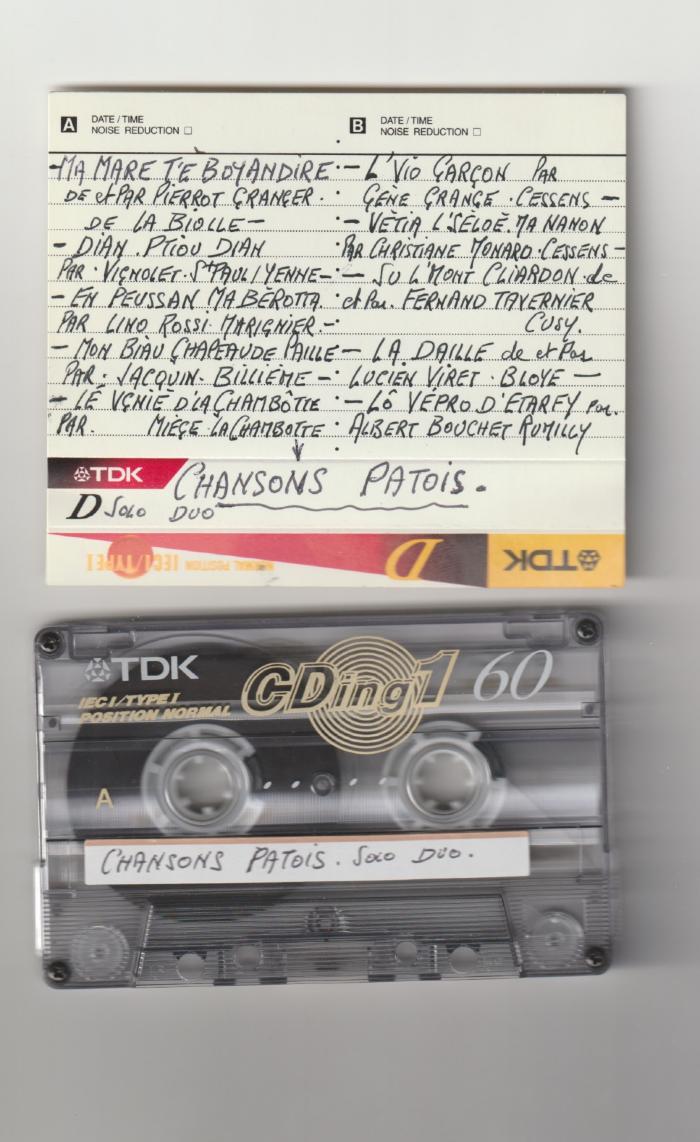 A DATE / TIME
NOISE REDUCTION
B DATE / TIME
NOISE REDUCTION
- MA MARE T'E BOYANDIRE
DE et PAR PIERROT GRANGER.
DE LA BIOLLE -
- DIAN . PTIOU DIAN
PAR . VIGNOLET . St PAUL / YENNE -
- EN PEUSSAN MA BÈROTTA
PAR LINO ROSSI . MARIGNIER -
- MON BIAU CHAPEAU DE PAILLE
PAR . JACQUIN . BILLIÈME -
- LÉ VGNIE D'LA CHAMBÔTTE
PAR . MIÈGE . LA CHAMBOTTE
- L'VIO GARÇON PAR
GÈNE GRANGE . CESSENS -
- VÈTIA L'SÈLOÈ . MA NANON
PAR CHRISTIANE MONARD . CESSENS -
- SU L'MONT CLIARDON de
et Par . FERNAND TAVERNIER
CUSY.
- LA DAILLE de et Par
LUCIEN VIRET . BLOYE -
- LÔ VÉPRO D'ETAREY Par.
ALBERT BOUCHET RUMILLY
TDK CHANSONS PATOIS .
D SOLO DUO
IEC I / TYPE I NORMAL POSITION D TDK
TDK CDing1 60
IEC I / TYPE I
POSITION NORMAL
A
CHANSONS PATOIS . SOLO DUO .